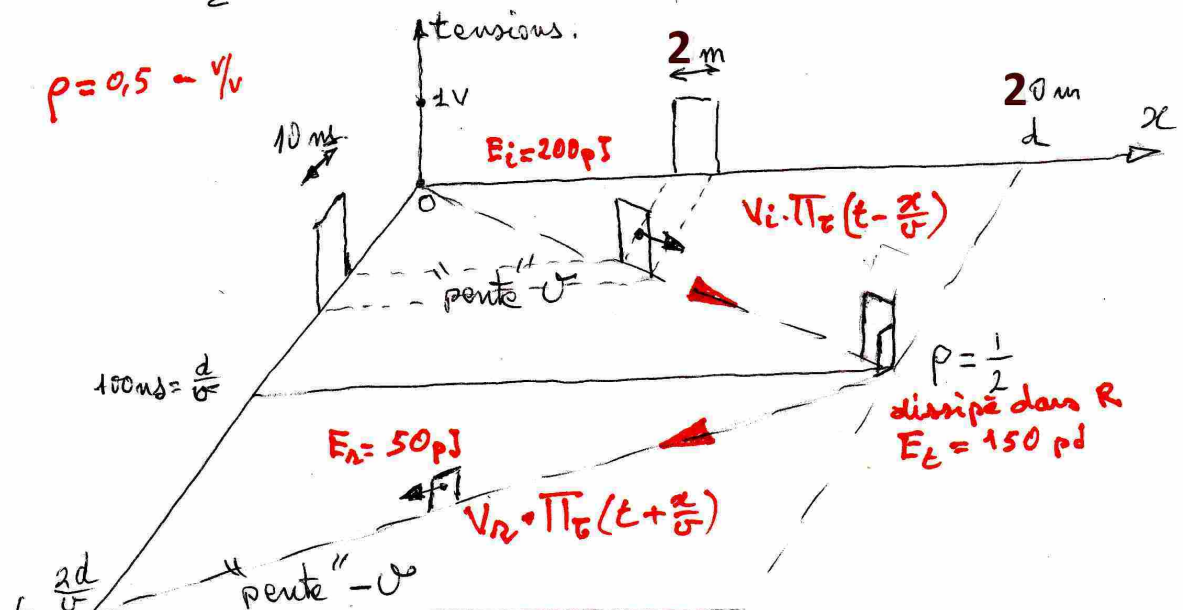 tensions.
ρ = 0,5 - V/V
1V
2 m
20 m
d
x
10 ns
Ei = 200 pJ
O
Vi.Πτ(t - x/v)
"pente" v
100 ns = d/v
ρ = 1/2
dissipé dans R
Et = 150 pJ
Er = 50 pJ
Vr.Πτ(t + x/v)
2d/v
"pente" -v